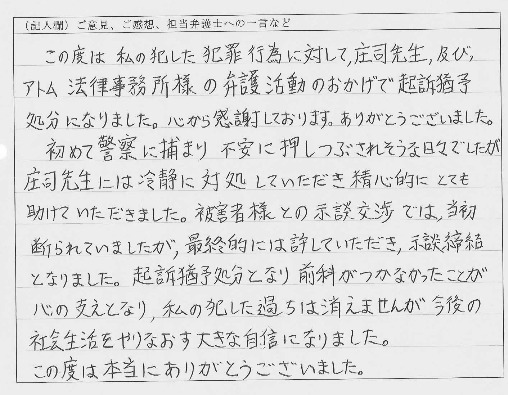 （記入欄）ご意見、ご感想、担当弁護士への一言など
この度は 私の犯した 犯罪行為に対して,庄司先生,及び,
アトム 法律事務所様 の 弁護活動のおかげで 起訴猶予
処分になりました。心から感謝しております。ありがとうございました。
初めて警察に捕まり 不安に押しつぶされそうな日々でしたが
庄司先生には冷静に対処していただき精心的にとても
助けていただきました。被害者様との示談交渉では,当初
断られていましたが,最終的には許していただき,示談締結
となりました。起訴猶予処分となり前科がつかなかったことが
心の支えとなり,私の犯した過ちは消えませんが今後の
社会生活をやりなおす大きな自信になりました。
この度は本当にありがとうございました。